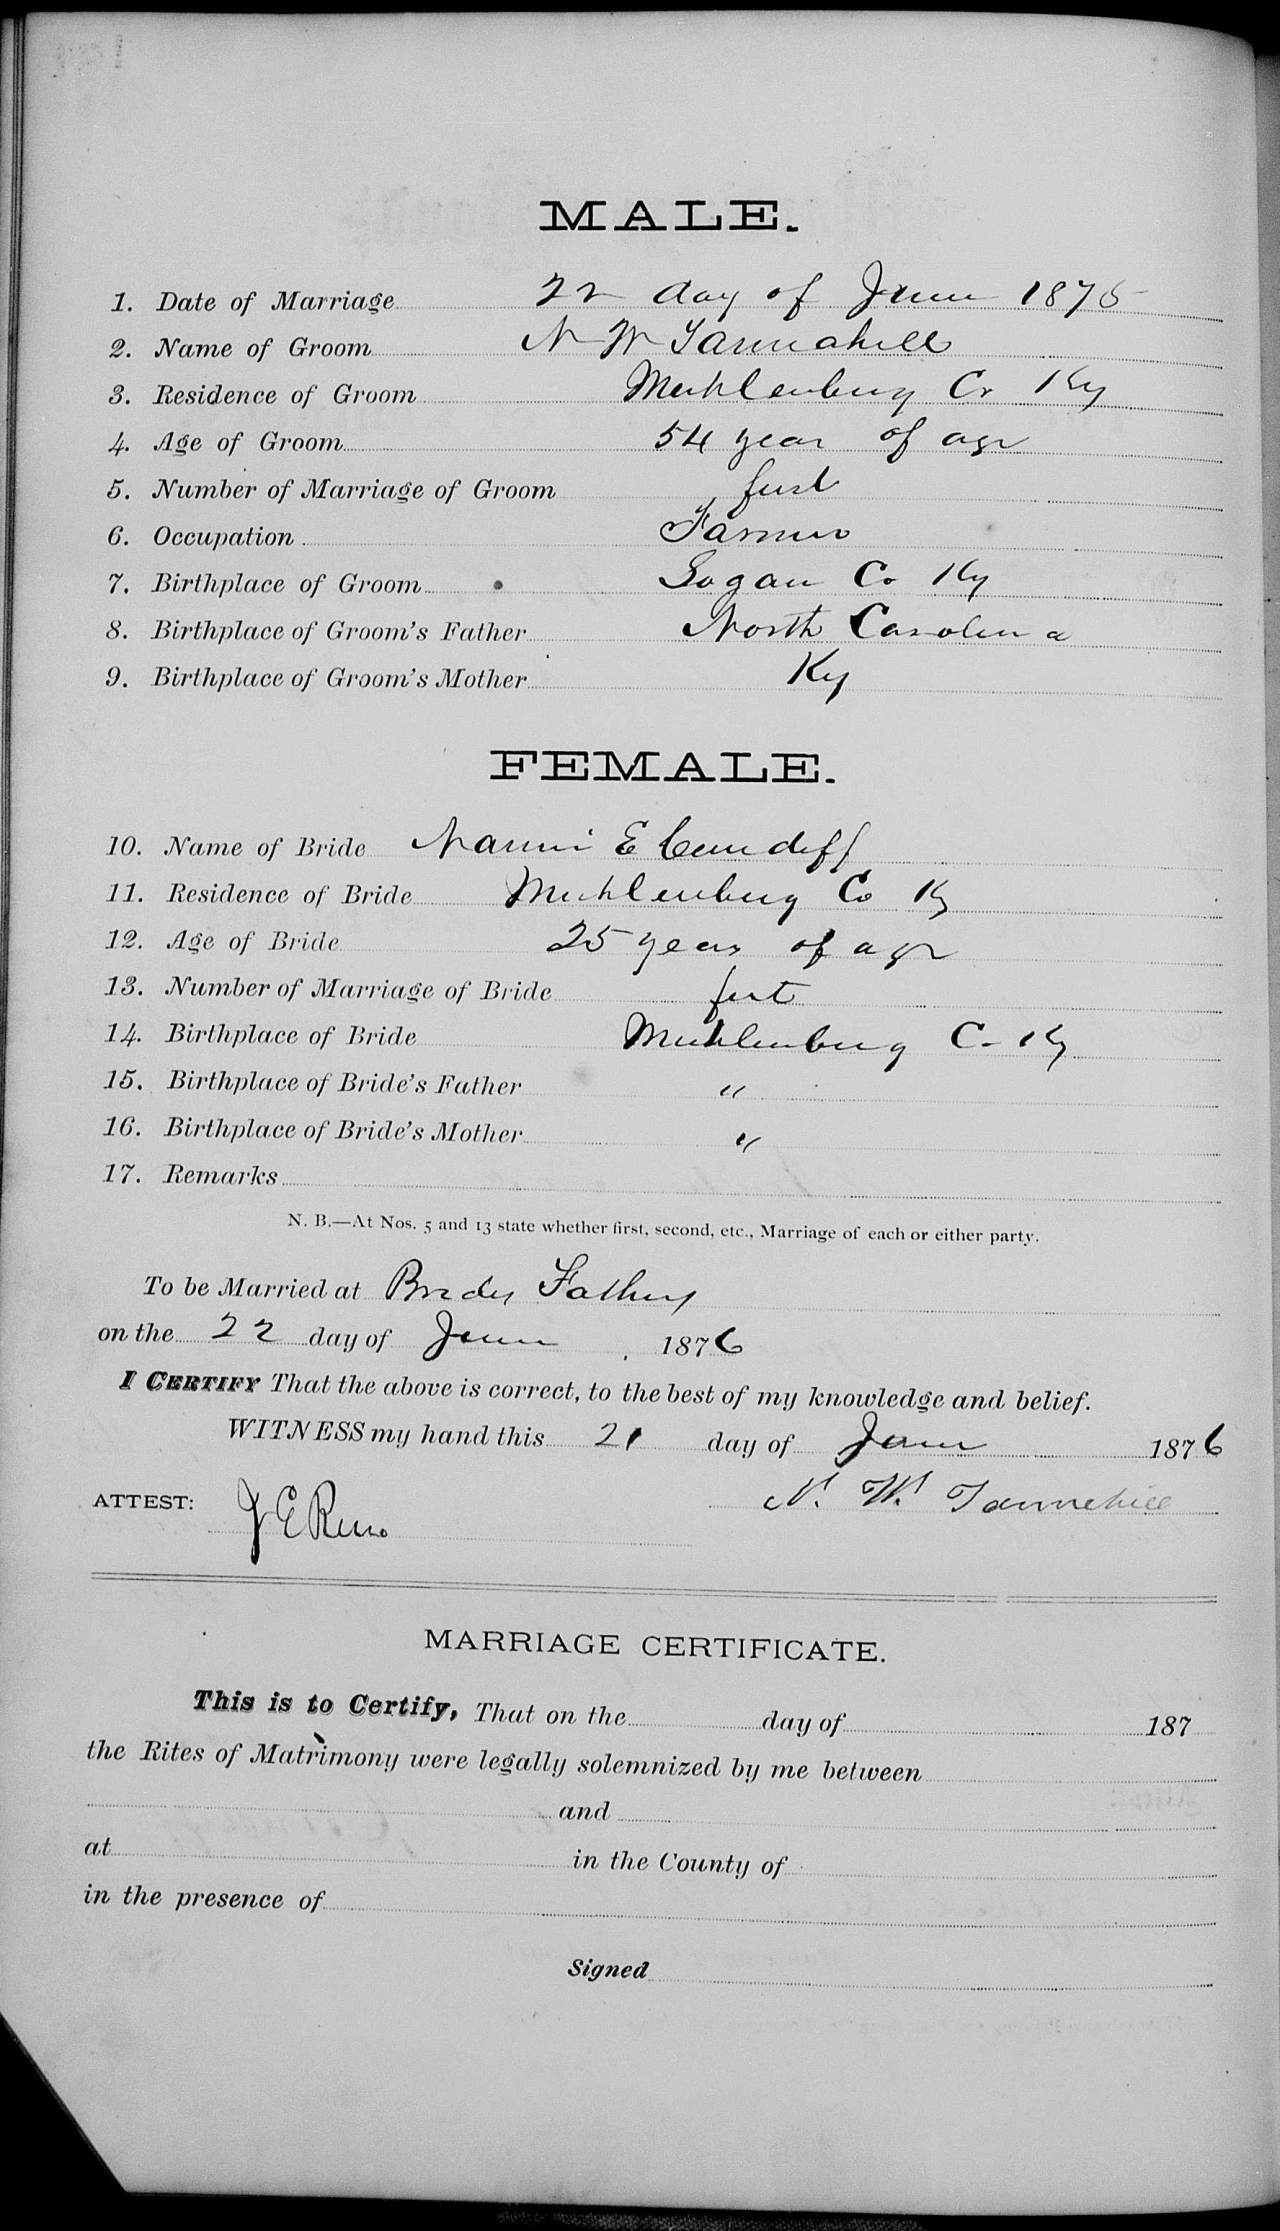 MALE.
1. Date of Marriage 22 day of June 1875
2. Name of Groom N W Tannahill
3. Residence of Groom Muhlenburg Co Ky
4. Age of Groom 54 year of age
5. Number of Marriage of Groom first
6. Occupation Farmer
7. Birthplace of Groom Logan Co Ky
8. Birthplace of Groom's Father North Carolina
9. Birthplace of Groom's Mother Ky
FEMALE.
10. Name of Bride Nannie E Cundiff
11. Residence of Bride Muhlenburg Co Ky
12. Age of Bride 25 years of age
13. Number of Marriage of Bride first
14. Birthplace of Bride Muhlenburg C- Ky
15. Birthplace of Bride's Father "
16. Birthplace of Bride's Mother "
17. Remarks
N. B.—At Nos. 5 and 13 state whether first, second, etc., Marriage of each or either party.
To be Married at Brides Fathers
on the 22 day of June 1876
I CERTIFY That the above is correct, to the best of my knowledge and belief.
WITNESS my hand this 21 day of June 1876
ATTEST: J E Reno N. W. Tannehill
MARRIAGE CERTIFICATE.
This is to Certify, That on the day of 187
the Rites of Matrimony were legally solemnized by me between
and
at in the County of
in the presence of
Signed